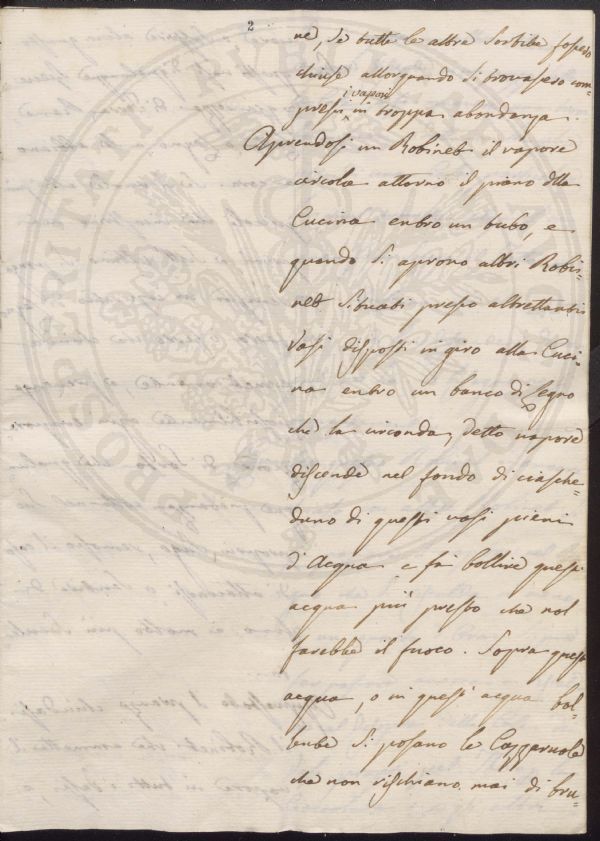 2
ne, se tutte le altre Sortite fossero
chiuse allorquando si trovassero com-
pressi i vapori in troppa abondanza.
Aprendosi un Robinet il vapore
circola attorno il piano della
Cucina entro un tubo, e
quando si aprono altri Robi-
net situati presso altrettanti
vasi disposti in giro alla Cuci-
na entro un banco di Legno
che la circonda, detto vapore
discende nel fondo di ciasche-
duno di questi vasi pieni
d'Acqua e fà bollire quest'
acqua più presto che nol
farebbe il fuoco. Sopra quest'
acqua, o in quest' acqua bol-
lente si posano le Cazzaruole
che non rischiano mai di bru-